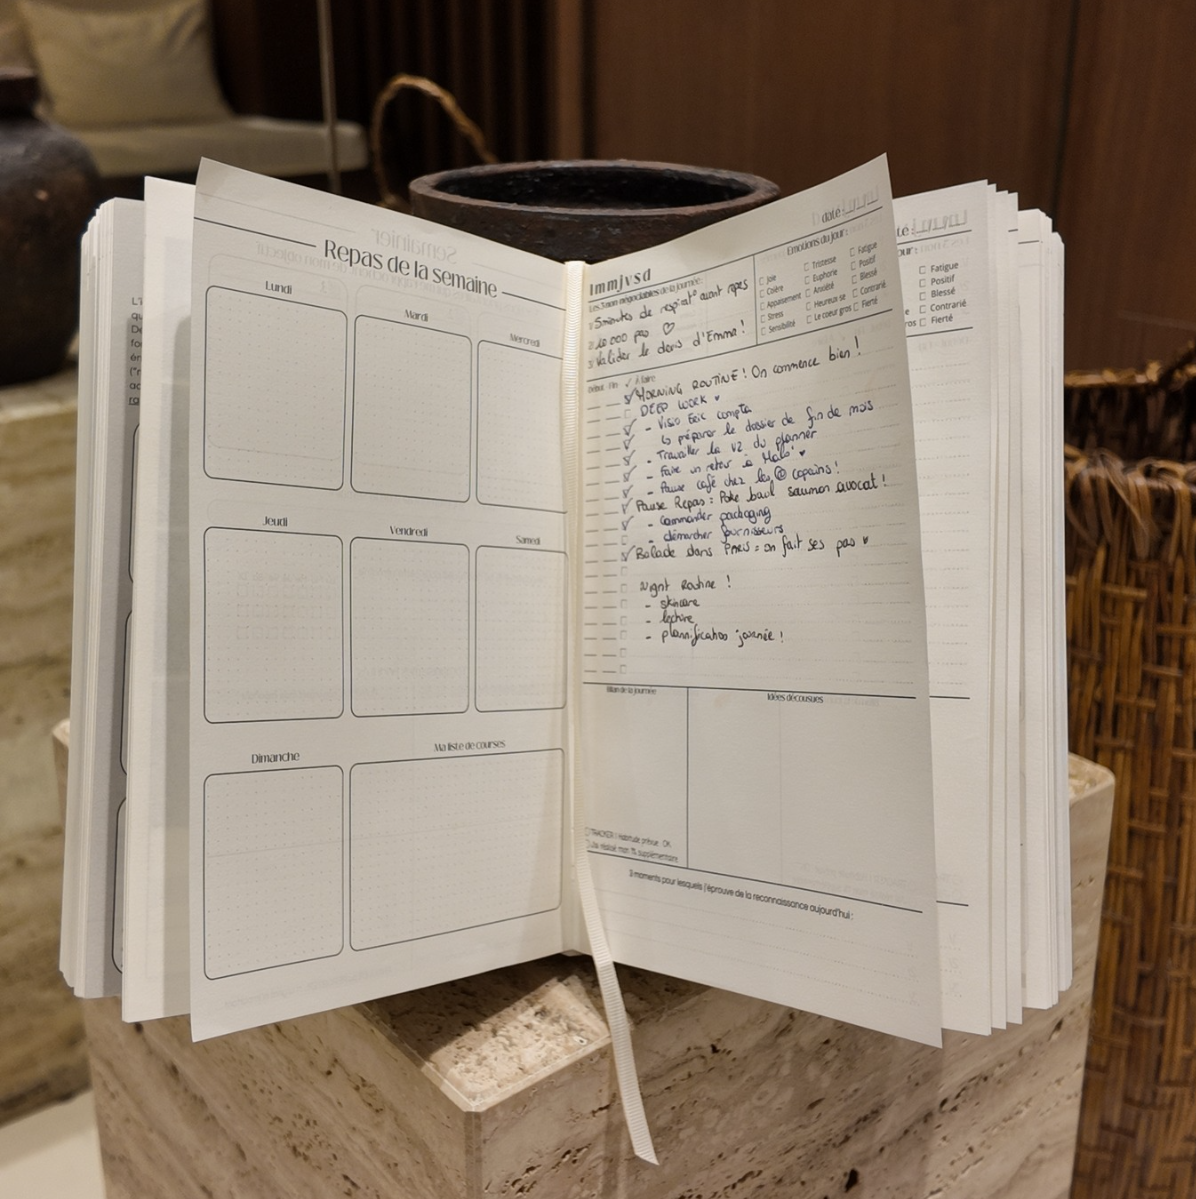 Repas de la semaine
Lundi
Mardi
Mercredi
Jeudi
Vendredi
Samedi
Dimanche
Ma liste de courses
date
lmmjvsd
Les 3 non négociables de la journée:
5minutes de respirat° avant repas
10 000 pas ♡
Valider le devis d'Emma !
Emotions du jour :
Joie
Tristesse
Fatigue
Colère
Euphorie
Positif
Apaisement
Anxiété
Blessé
Stress
Heureux·se
Contrarié
Sensibilité
Le coeur gros
Fierté
Début Fin ✓ À faire
MORNING ROUTINE ! On commence bien !
DEEP WORK ♥
- Visio Eric compta
↳ préparer le dossier de fin de mois
- Travailler la V2 du planner
- Faire un retour à Malo ♥
- Pause café chez les copains !
Pause Repas : Poke bowl saumon avocat !
- commander packaging
- démarcher fournisseurs
Balade dans PARIS : on fait ses pas ♥
Night Routine !
- skincare
- lecture
- planification journée !
Bilan de la journée
Idées décousues
TRACKER ! Habitude prévue : OK
J'ai réalisé mon 1% supplémentaire
3 moments pour lesquels j'éprouve de la reconnaissance aujourd'hui :
té :
our :
Fatigue
Positif
Blessé
Contrarié
ros
Fierté